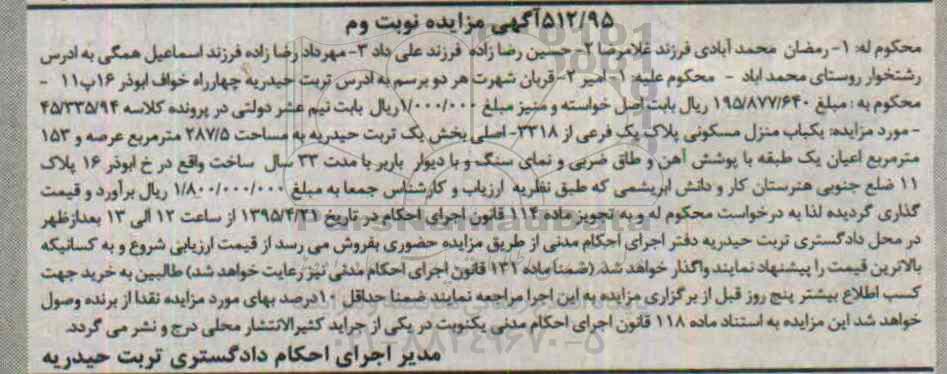 ۵۱۲/۹۵آگهی مزایده نوبت وم
محکوم له: ۱- رمضان محمد آبادی فرزند غلامرضا ۲- حسین رضا زاده فرزند علی داد ۳- مهرداد رضا زاده فرزند اسماعیل همگی به ادرس
رشتخوار روستای محمد اباد - محکوم علیه: ۱- امیر ۲- قربان شهرت هر دو برسم به ادرس تربت حیدریه چهارراه خواف ابوذر ۱۶پ۱۱ -
محکوم به : مبلغ ۱۹۵/۸۷۷/۶۴۰ ریال بابت اصل خواسته و منیز مبلغ ۱/۰۰۰/۰۰۰ریال بابت نیم عشر دولتی در پرونده کلاسه ۴۵/۳۳۵/۹۴
- مورد مزایده: یکباب منزل مسکونی پلاک یک فرعی از ۳۳۱۸- اصلی بخش یک تربت حیدریه به مساحت ۲۸۷/۵ مترمربع عرصه و ۱۵۳
مترمربع اعیان یک طبقه با پوشش آهن و طاق ضربی و نمای سنگ و با دیوار باربر با مدت ۳۳ سال ساخت واقع در خ ابوذر ۱۶ پلاک
۱۱ ضلع جنوبی هنرستان کار و دانش ابریشمی که طبق نظریه ارزیاب و کارشناس جمعا به مبلغ ۱/۸۰۰/۰۰۰/۰۰۰ ریال برآورد و قیمت
گذاری گردیده لذا به درخواست محکوم له و به تجویز ماده ۱۱۴ قانون اجرای احکام در تاریخ ۱۳۹۵/۴/۲۱ از ساعت ۱۲ الی ۱۳ بعدازظهر
در محل دادگستری تربت حیدریه دفتر اجرای احکام مدنی از طریق مزایده حضوری بفروش می رسد از قیمت ارزیابی شروع و به کسانیکه
بالاترین قیمت را پیشنهاد نمایند واگذار خواهد شد. (ضمنا ماده ۱۳۱ قانون اجرای احکام مدنی نیز رعایت خواهد شد) طالبین به خرید جهت
کسب اطلاع بیشتر پنج روز قبل از برگزاری مزایده به این اجرا مراجعه نمایند ضمنا حداقل ۱۰درصد بهای مورد مزایده نقدا از برنده وصول
خواهد شد این مزایده به استناد ماده ۱۱۸ قانون اجرای احکام مدنی یکنوبت در یکی از جراید کثیرالانتشار محلی درج و نشر می گردد.
مدیر اجرای احکام دادگستری تربت حیدریه
ParsNamadData
۰۲۱-۸۸۳۴۹۶۷۰-۵